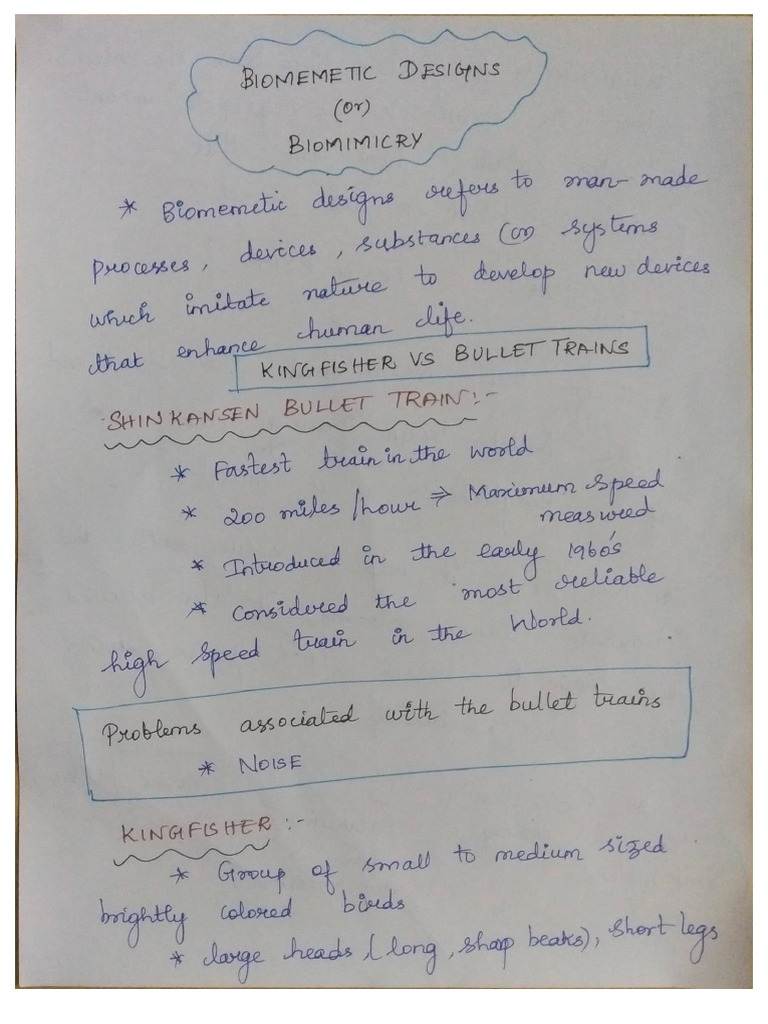 BIOMEMETIC DESIGNS
(Or)
BIOMIMICRY
* Biomemetic designs refers to man-made
processes, devices, substances (or) systems
which imitate nature to develop new devices
that enhance human life.
KINGFISHER VS BULLET TRAINS
SHINKANSEN BULLET TRAIN:-
* Fastest train in the world
* 200 miles/hour ⇒ Maximum speed
measured
* Introduced in the early 1960's
* Considered the most reliable
high speed train in the World.
Problems associated with the bullet trains
* NOISE
KINGFISHER:-
* Group of small to medium sized
brightly colored birds
* large heads, (long, sharp beaks), short legs